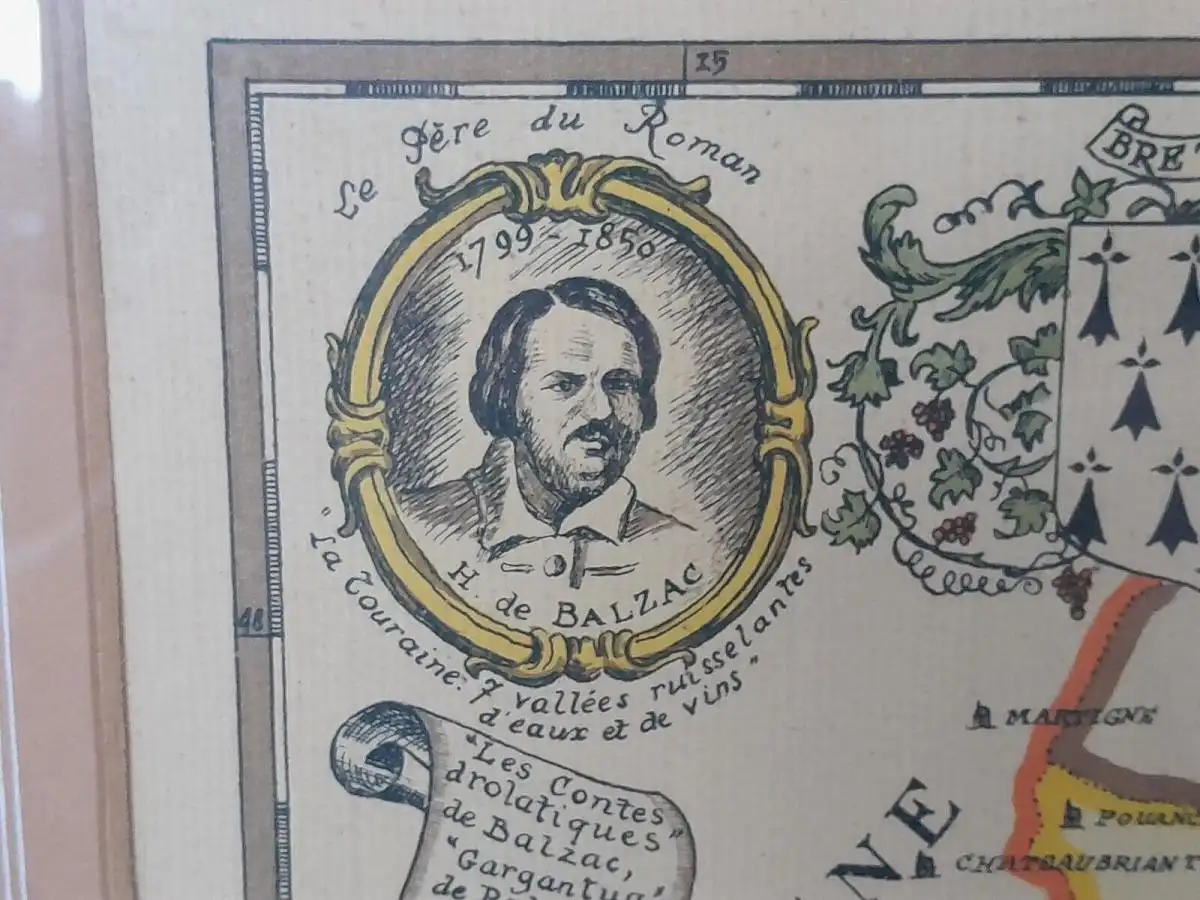 15
Le Père du Roman
1799 - 1850
H. de BALZAC
"La Touraine: 7 vallées ruisselantes
d'eaux et de vins"
"Les Contes
drolatiques"
de Balzac,
"Gargantua"
de
BRET
48
MARTIGNE
POUANC
CHATEAUBRIANT
NE